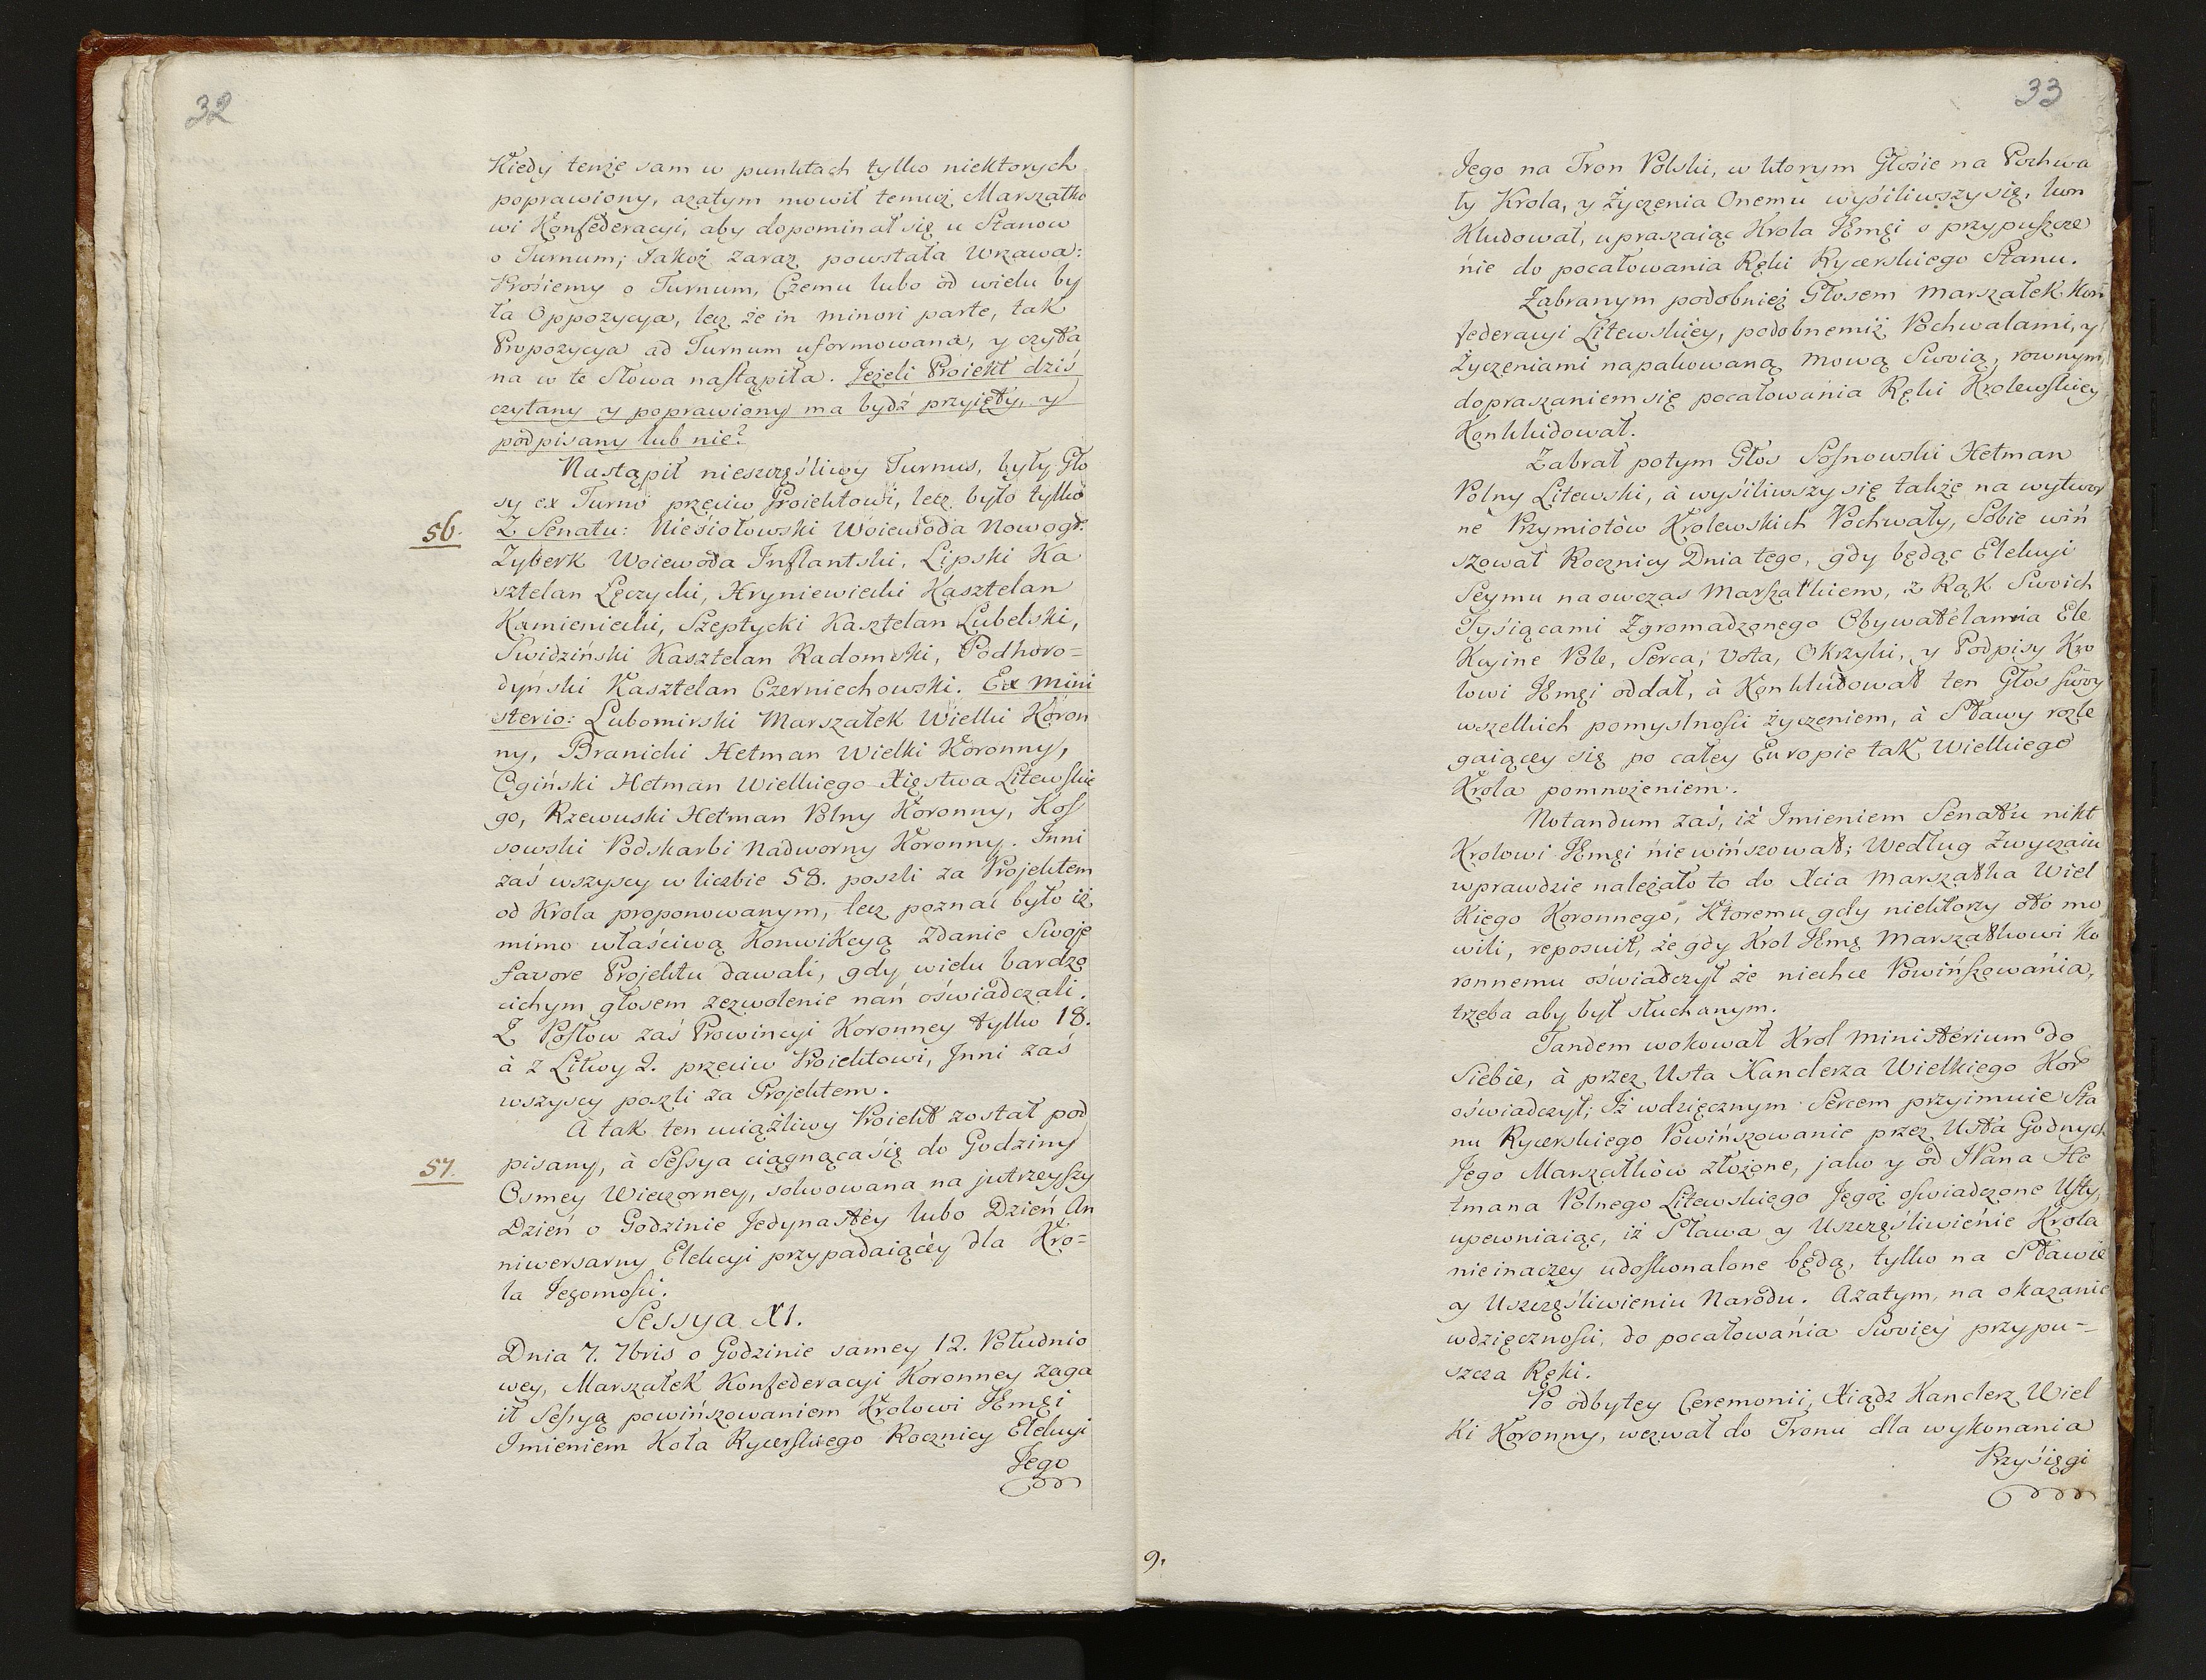 32
Kiedy tenże sam w punktach tylko niektorych
poprawiony, azatym mowił temuż Marszałko
wi Konfederacyi, aby dopominał się u Stanow
o Turnum; Jakoż zaraz powstała Wrzawa:
Prosiemy o Turnum, Czemu lubo od wielu by
ła Oppozycya, lecz że in minori parte, tak
Propozycya ad Turnum uformowana, y czyta
na w te Słowa nastąpiła. Jeżeli Proiekt dziś
czytany y poprawiony ma bydź przyięty, y
podpisany lub nie?
Nastąpił nieszczęśliwy Turnus, były Gło
sy ex Turno przeciw Proiektowi, lecz było tylko
56. Z Senatu: Niesiołowski Woiewoda Nowogr:
Zyberk Woiewoda Inflantski, Lipski Ka
sztelan Łęczycki, Hryniewiecki Kasztelan
Kamieniecki, Szeptycki Kasztelan Lubelski,
Swidziński Kasztelan Radomski, Podhoro=
dyński Kasztelan Czerniechowski. Ex Mini
sterio: Lubomirski Marszałek Wielki Koron
ny, Branicki Hetman Wielki Koronny,
Ogiński Hetman Wielkiego Xięstwa Litewskie
go, Rzewuski Hetman Polny Koronny, Kos
sowski Podskarbi Nadworny Koronny. Inni
zaś wszyscy w liczbie 58. poszli za Projektem
od Krola proponowanym, lecz poznać było iż
mimo właściwą Konwikcyą zdanie Swoje
favore Projektu dawali, gdy wielu bardzo
cichym głosem zezwolenie nań oświadczali.
Z Posłow zaś Prowincyi Koronney tylko 18.
à z Litwy 2. przeciw Proiektowi, Inni zaś
wszyscy poszli za Projektem.
A tak ten uciążliwy Proiekt został pod
57. pisany, à Sessya ciągnąca się do Godziny
Osmey Wieczorney, solwowana na jutrzeyszy
Dzień o Godzinie Jedynastéy lubo Dzień An
niwersarny Elekcyi przypadaiącéy dla Kro=
la Jegomości.
Sessya XI.
Dnia 7. 7bris o Godzinie samey 12. Południo
wey, Marszałek Konfederacyi Koronney zaga
ił Sessyą powinszowaniem Krolowi JEmći
Imieniem Koła Rycerskiego Rocznicy Elekcyi
Jego
33
Jego na Tron Polski, w ktorym Głosie na Pochwa
ły Krola, y Życzenia Onemu wysiliwszy się, kon
kludował, upraszaiąc Krola JEmći o przypuszcze
nie do pocałowania Ręki Rycerskiego Stanu.
Zabranym podobnież Głosem Marszałek Kon
federacyi Litewskiéy, podobnemiż Pochwałami, y
życzeniami napakowaną mową Swoią, rownym
dopraszaniem się pocałowania Ręki Krolewskiéy
Konkludował.
Zabrał potym Głos Sosnowski Hetman
Polny Litewski, à wysiliwszy się także na wytwor
ne Przymiotów Krolewskich Pochwały, Sobie win
szował Rocznicy Dnia tego, gdy będąc Elekcyi
Seymu naowczas Marszałkiem, z Rąk Swoich
Tysiącami Zgromadzonego Obywatelamia Ele
Kcyine Pole, Serca, Vota, Okrzyki, y Podpisy Kro
lowi JEmći oddał, à Konkludował ten Głos swoy
wszelkich pomyslności życzeniem, à Sławy rozle
gaiącey się po całey Europie tak Wielkiego
Krola pomnożeniem.
Notandum zaś, iż Imieniem Senatu nikt
Krolowi JEmći nie winszował; Według Zwyczaiu
wprawdzie należało to do Xcia Marszałka Wiel
kiego Koronnego, Ktoremu gdy niektorzy oto mo
wili, reposuit, że gdy Krol JEmć Marszałkowi Ko
ronnemu oświadczył że niechce Powinszowania,
trzeba aby był słuchanym.
Tandem wokował Krol Ministérium do
Siebie, à przez Usta Kanclerza Wielkiego Kor
oświadczył; Iż wdzięcznym Sercem przyimuie Sta
nu Rycerskiego Powinszowanie przez Usta Godnych
Jego Marszałków złożone, jako y od JPana He
tmana Polnego Litewskiego Jegoż oswiadczone Usty,
upewniaiąc, iż Sława y Uszczęśliwienie Krola
nieinaczey udoskonalone będą, tylko na Sławie
y Uszczęśliwieniu Narodu. Azatym, na okazanie
wdzięczności, do pocałowania Swoiey przypu-
szcza Ręki.
Po odbytey Ceremonii, Xiądz Kanclerz Wiel
ki Koronny, wezwał do Tronu dla wykonania
Przysięgi
9.